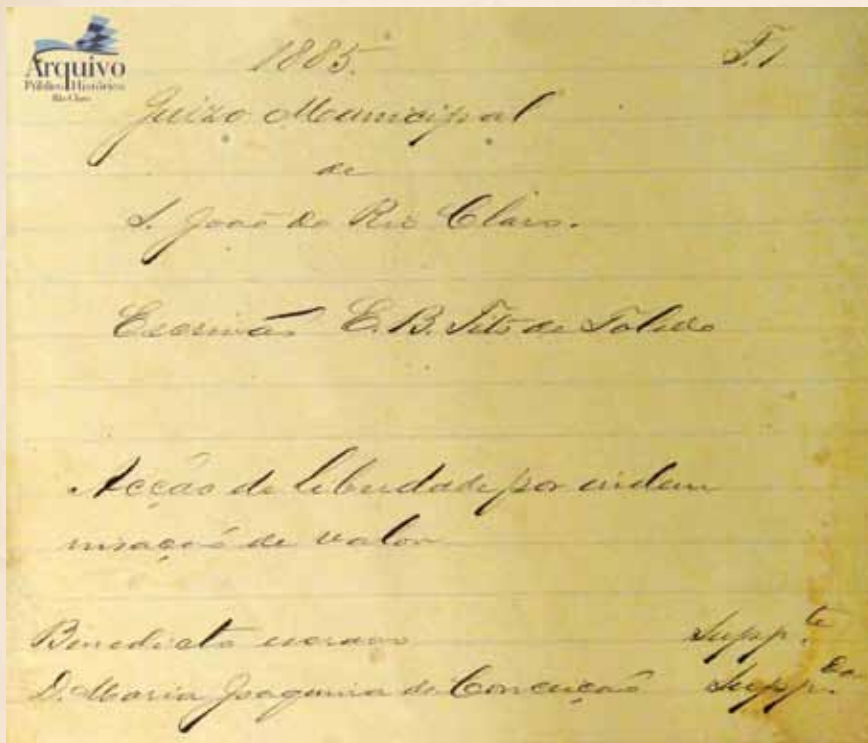 Arquivo
Público e Histórico
Rio Claro
1885. F. 1
Juizo Municipal
de
S. João do Rio Claro.
Escrivão E. B. Tito de Toledo
Acção de liberdade por indem
nisação de valor
Benedicto escravo Supp.te
D. Maria Joaquina da Conceição Supp.da